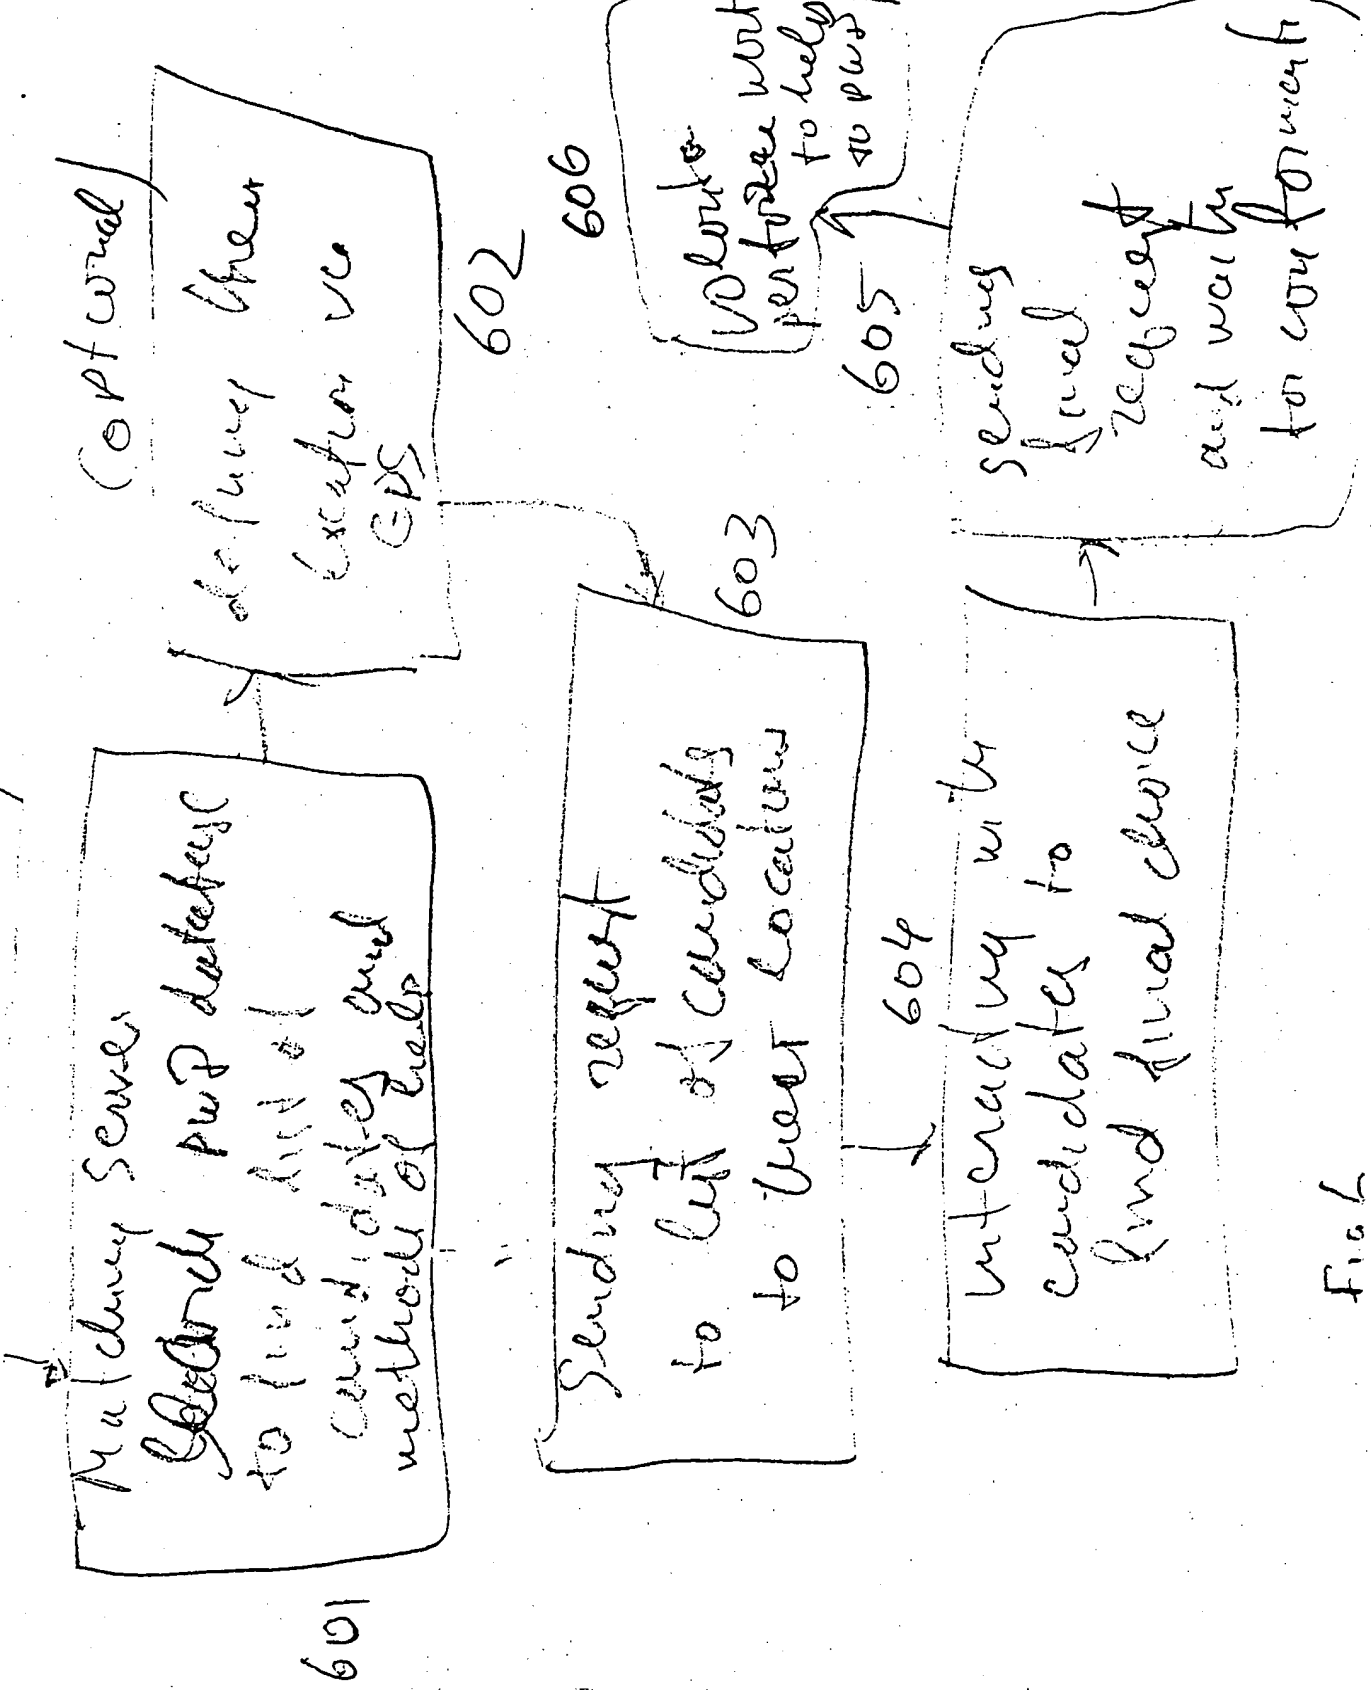 601
Matching Server
Search pwd database
to find list of
candidates and
method of help
(optional)
defining their
location via
GPS
602
603
Sending request
to list of candidates
to their locations
604
interacting with
candidates to
find final choice
605
sending
final
request
and wait
for conformati
606
volonte
perform
to help
to pwd
Fig